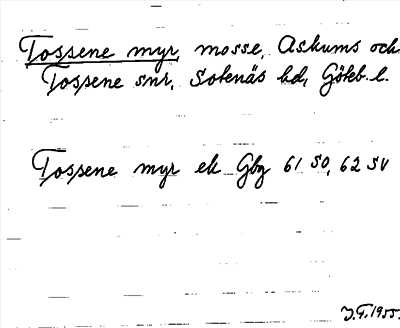 Tossene myr, mosse, Askums och
Tossene snr, Sotenäs hd, Göteb. l.
Tossene myr ek Gbg 61 SO, 62 SV
J.T. 1955.